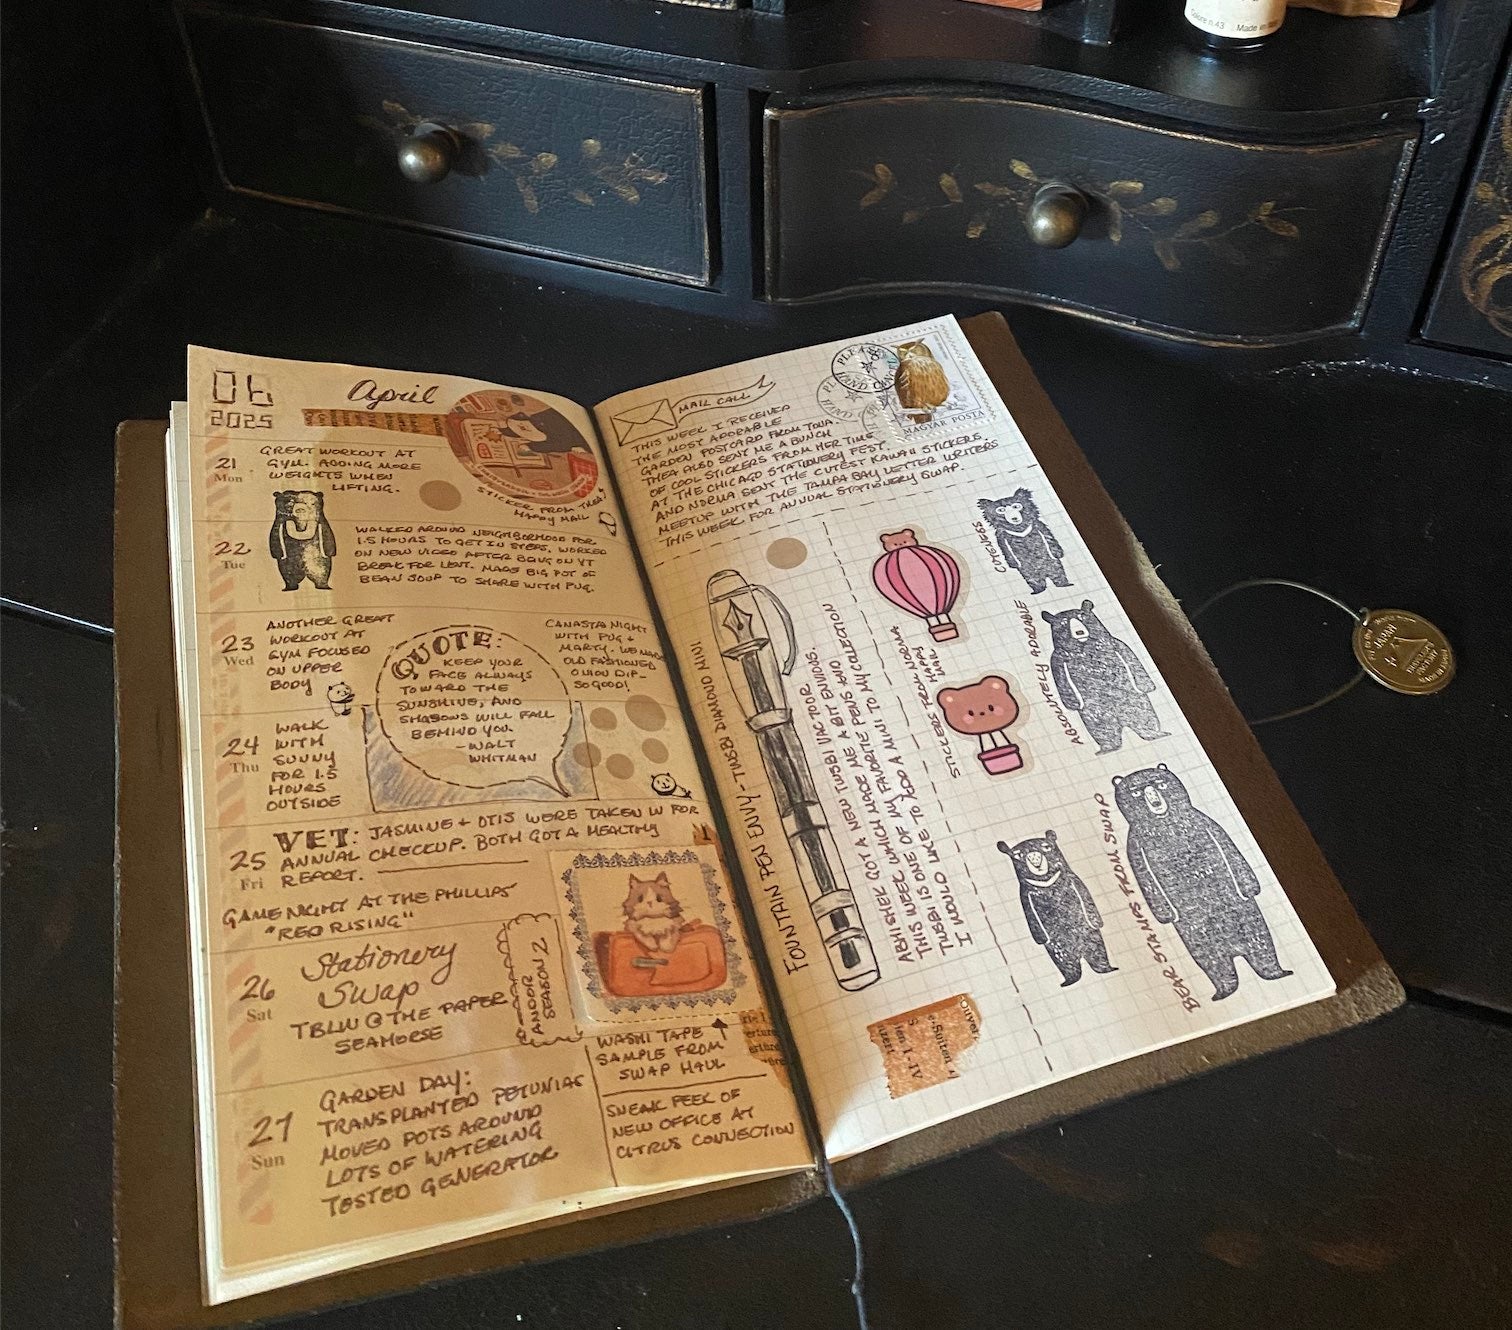 Colore n.43 Made in
06
2025
April
21
Mon
GREAT WORKOUT AT
GYM. ADDING MORE
WEIGHTS WHEN
LIFTING.
STICKER FROM THEA
HAPPY MAIL
22
Tue
WALKED AROUND NEIGHBORHOOD FOR
1.5 HOURS TO GET IN STEPS. WORKED
ON NEW VIDEO AFTER BEING ON YT
BREAK FOR LENT. MADE BIG POT OF
BEAN SOUP TO SHARE WITH PUG.
23
Wed
ANOTHER GREAT
WORKOUT AT
GYM FOCUSED
ON UPPER
BODY
QUOTE:
KEEP YOUR
FACE ALWAYS
TOWARD THE
SUNSHINE, AND
SHADOWS WILL FALL
BEHIND YOU.
-WALT
WHITMAN
CANASTA NIGHT
WITH PUG +
MARTY. WE MADE
OLD FASHIONED
ONION DIP-
SO GOOD!
24
Thu
WALK
WITH
SUNNY
FOR 1.5
HOURS
OUTSIDE
25
Fri
VET: JASMINE + OTIS WERE TAKEN IN FOR
ANNUAL CHECKUP. BOTH GOT A HEALTHY
REPORT.
GAME NIGHT AT THE PHILLIPS'
"RED RISING"
26
Sat
Stationery
Swap
TBLW @ THE PAPER
SEAHORSE
ANDOR
SEASON 2
WASHI TAPE
SAMPLE FROM
SWAP HAUL
27
Sun
GARDEN DAY:
TRANSPLANTED PETUNIAS
MOVED POTS AROUND
LOTS OF WATERING
TESTED GENERATOR
SNEAK PEEK OF
NEW OFFICE AT
CITRUS CONNECTION
MAIL CALL
THIS WEEK I RECEIVED
THE MOST ADORABLE
GARDEN POSTCARD FROM TOVA.
THEA ALSO SENT ME A BUNCH
OF COOL STICKERS FROM HER TIME
AT THE CHICAGO STATIONERY FEST.
AND NORMA SENT THE CUTEST KAWAII STICKERS.
MEETUP WITH THE TAMPA BAY LETTER WRITERS
THIS WEEK FOR ANNUAL STATIONERY SWAP.
PLEASE
HAND CANCEL
MAGYAR POSTA
FOUNTAIN PEN ENVY - TWSBI DIAMOND MINI
ABHISHEK GOT A NEW TWSBI VAC 700R
THIS WEEK WHICH MADE ME A BIT ENVIOUS.
TWSBI IS ONE OF MY FAVORITE PENS AND
I WOULD LIKE TO ADD A MINI TO MY COLLECTION
STICKERS FROM NORMA
HAPPY
MAIL
CUTENESS
ABSOLUTELY ADORABLE
BEAR STAMPS FROM SWAP
JAPAN